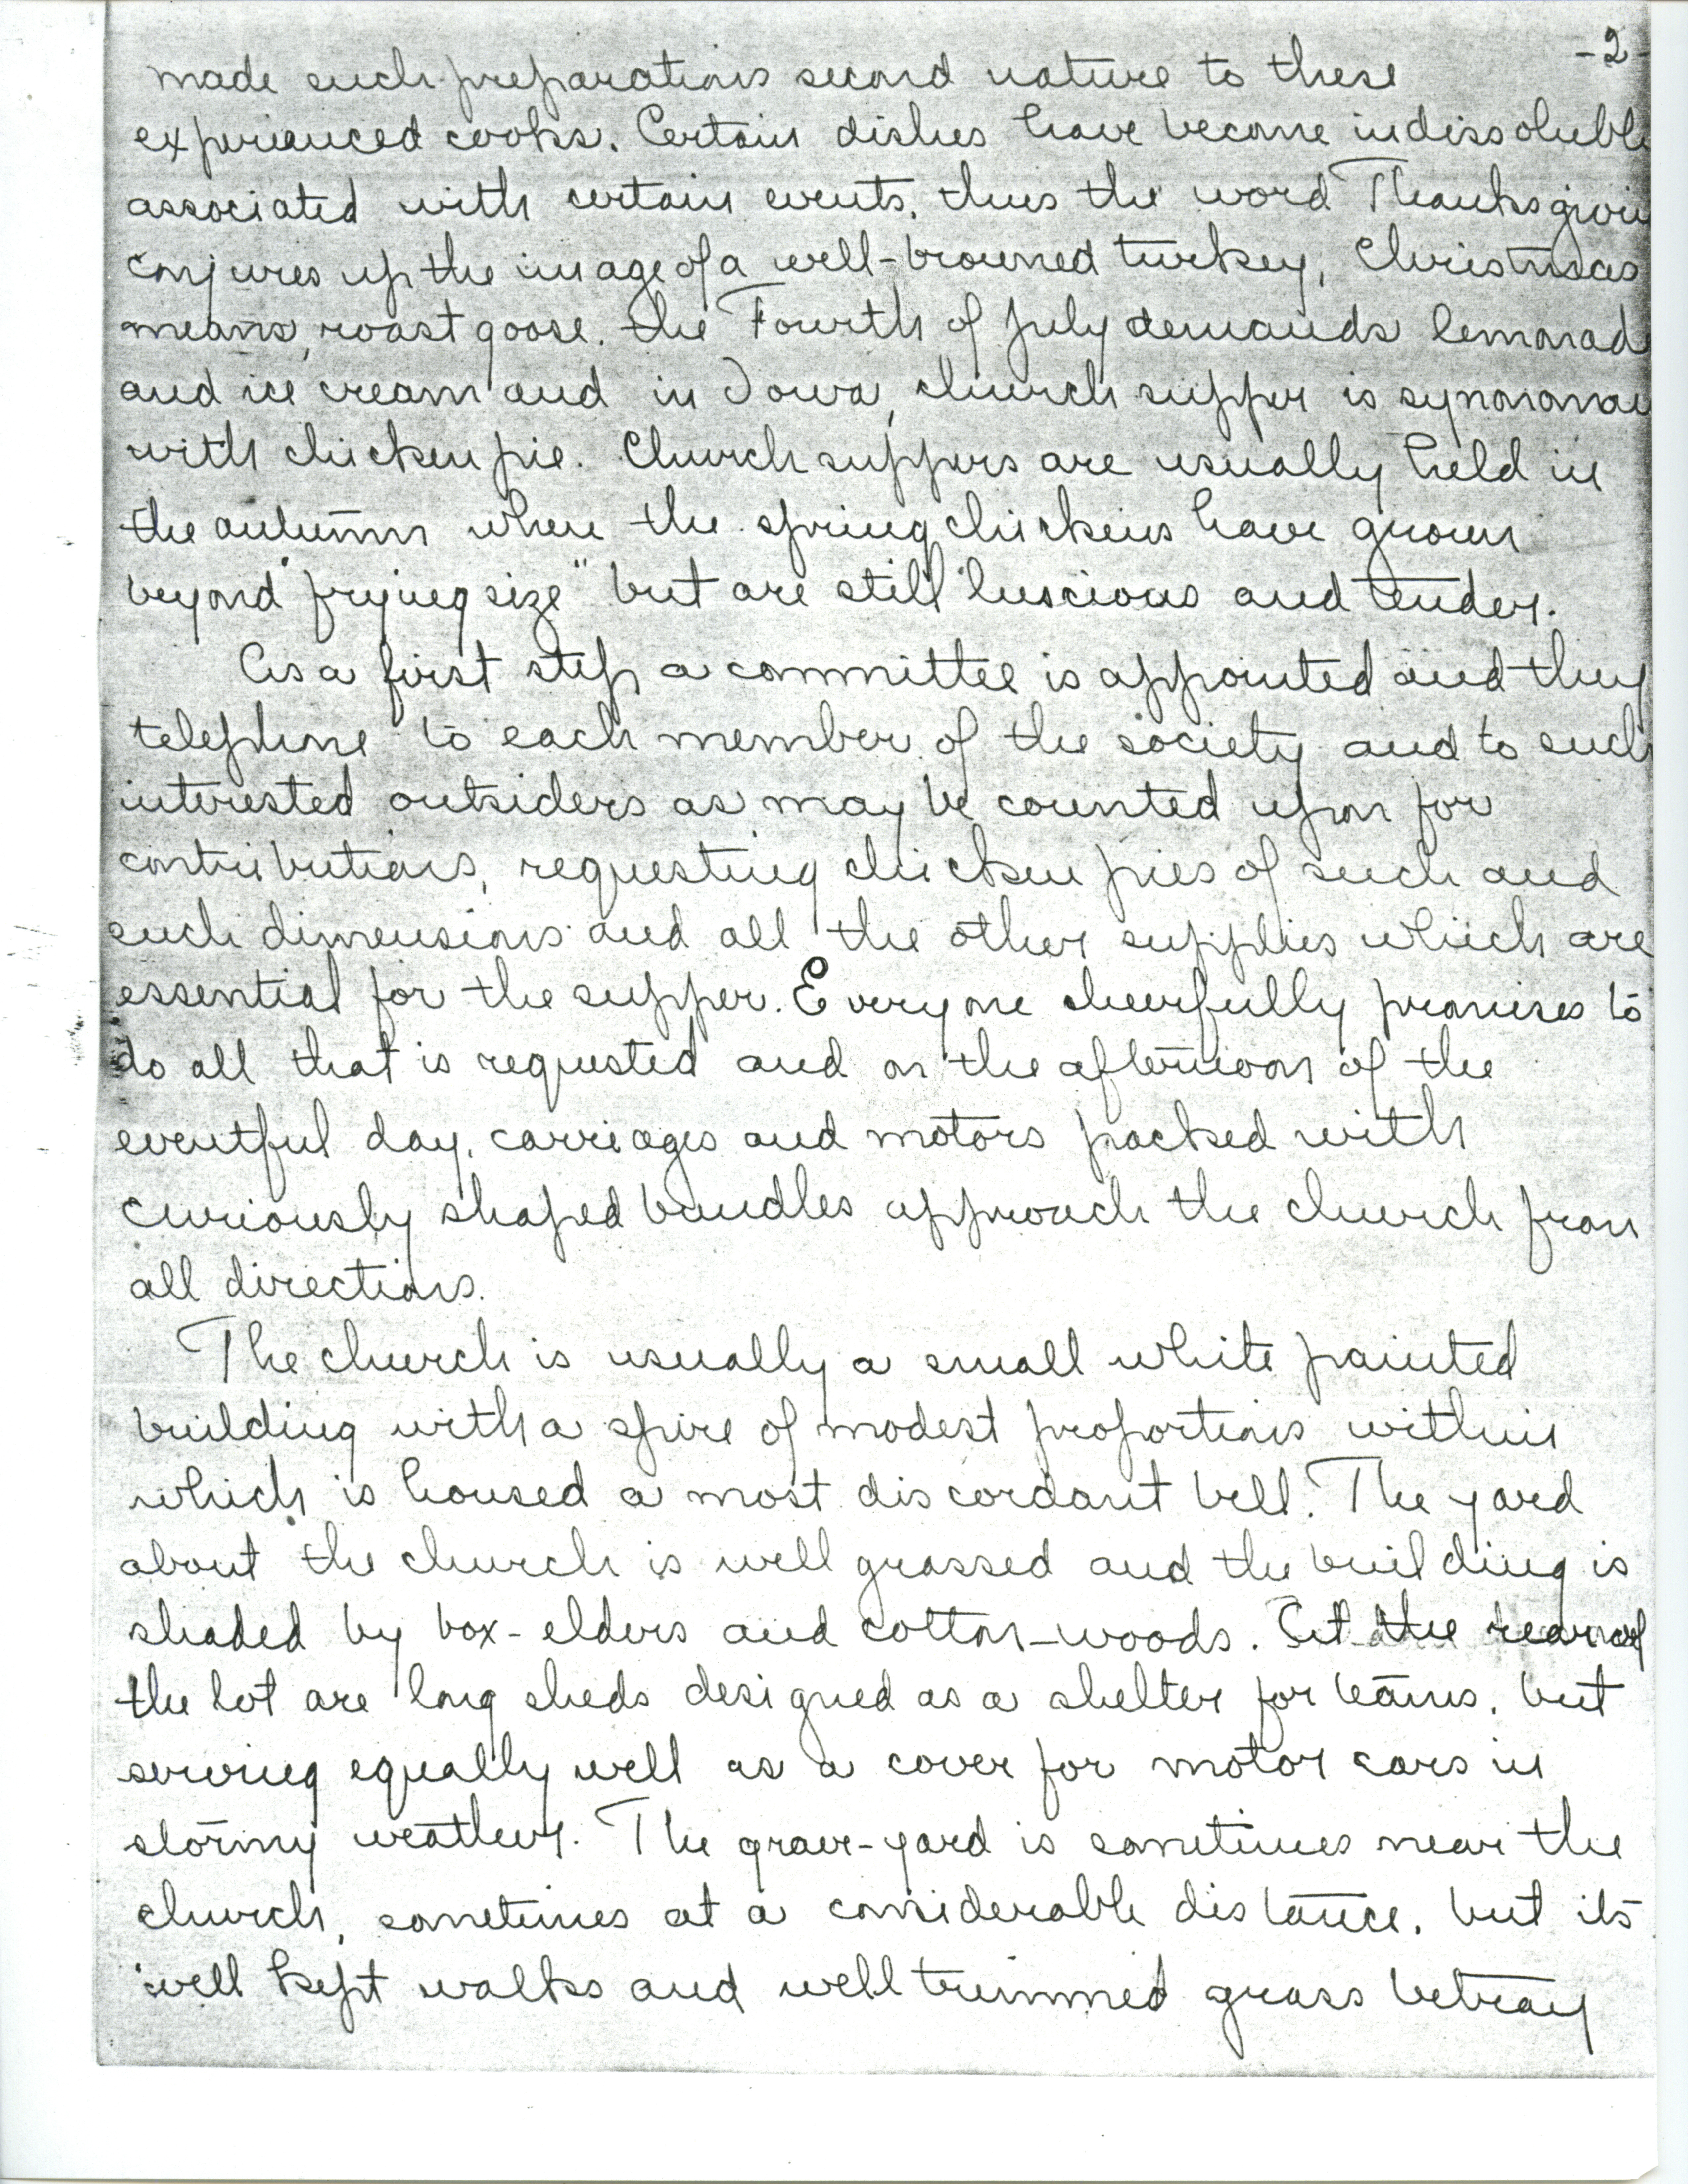 -2-
made such preparations second nature to these
experienced cooks. Certain dishes have become indissolubl
associated with certain events, thus the word Thanksgivin
conjures up the image of a well-browned turkey, Christmas
means, roast goose, the Fourth of July demands lemonad
and ice cream and in Iowa, church supper is synonomou
with chicken pie. Church suppers are usually held in
the autumn when the spring chickens have grown
beyond "frying size" but are still luscious and tender.
As a first step a committee is appointed and they
telephone to each member of the society and to such
interested outsiders as may be counted upon for
contributions, requesting chicken pies of such and
such dimensions and all the other supplies which are
essential for the supper. Everyone cheerfully promises to
do all that is requested and on the afternoon of the
eventful day, carriages and motors packed with
curiously shaped bundles approach the church from
all directions.
The church is usually a small white painted
building with a spire of modest proportions within
which is housed a most discordant bell. The yard
about the church is well grassed and the building is
shaded by box-elders and cotton-woods. At the rear of
the lot are long sheds designed as a shelter for teams, but
serving equally well as a cover for motor cars in
stormy weather. The grave-yard is sometimes near the
church, sometimes at a considerable distance, but its
well kept walks and well trimmed grass betray